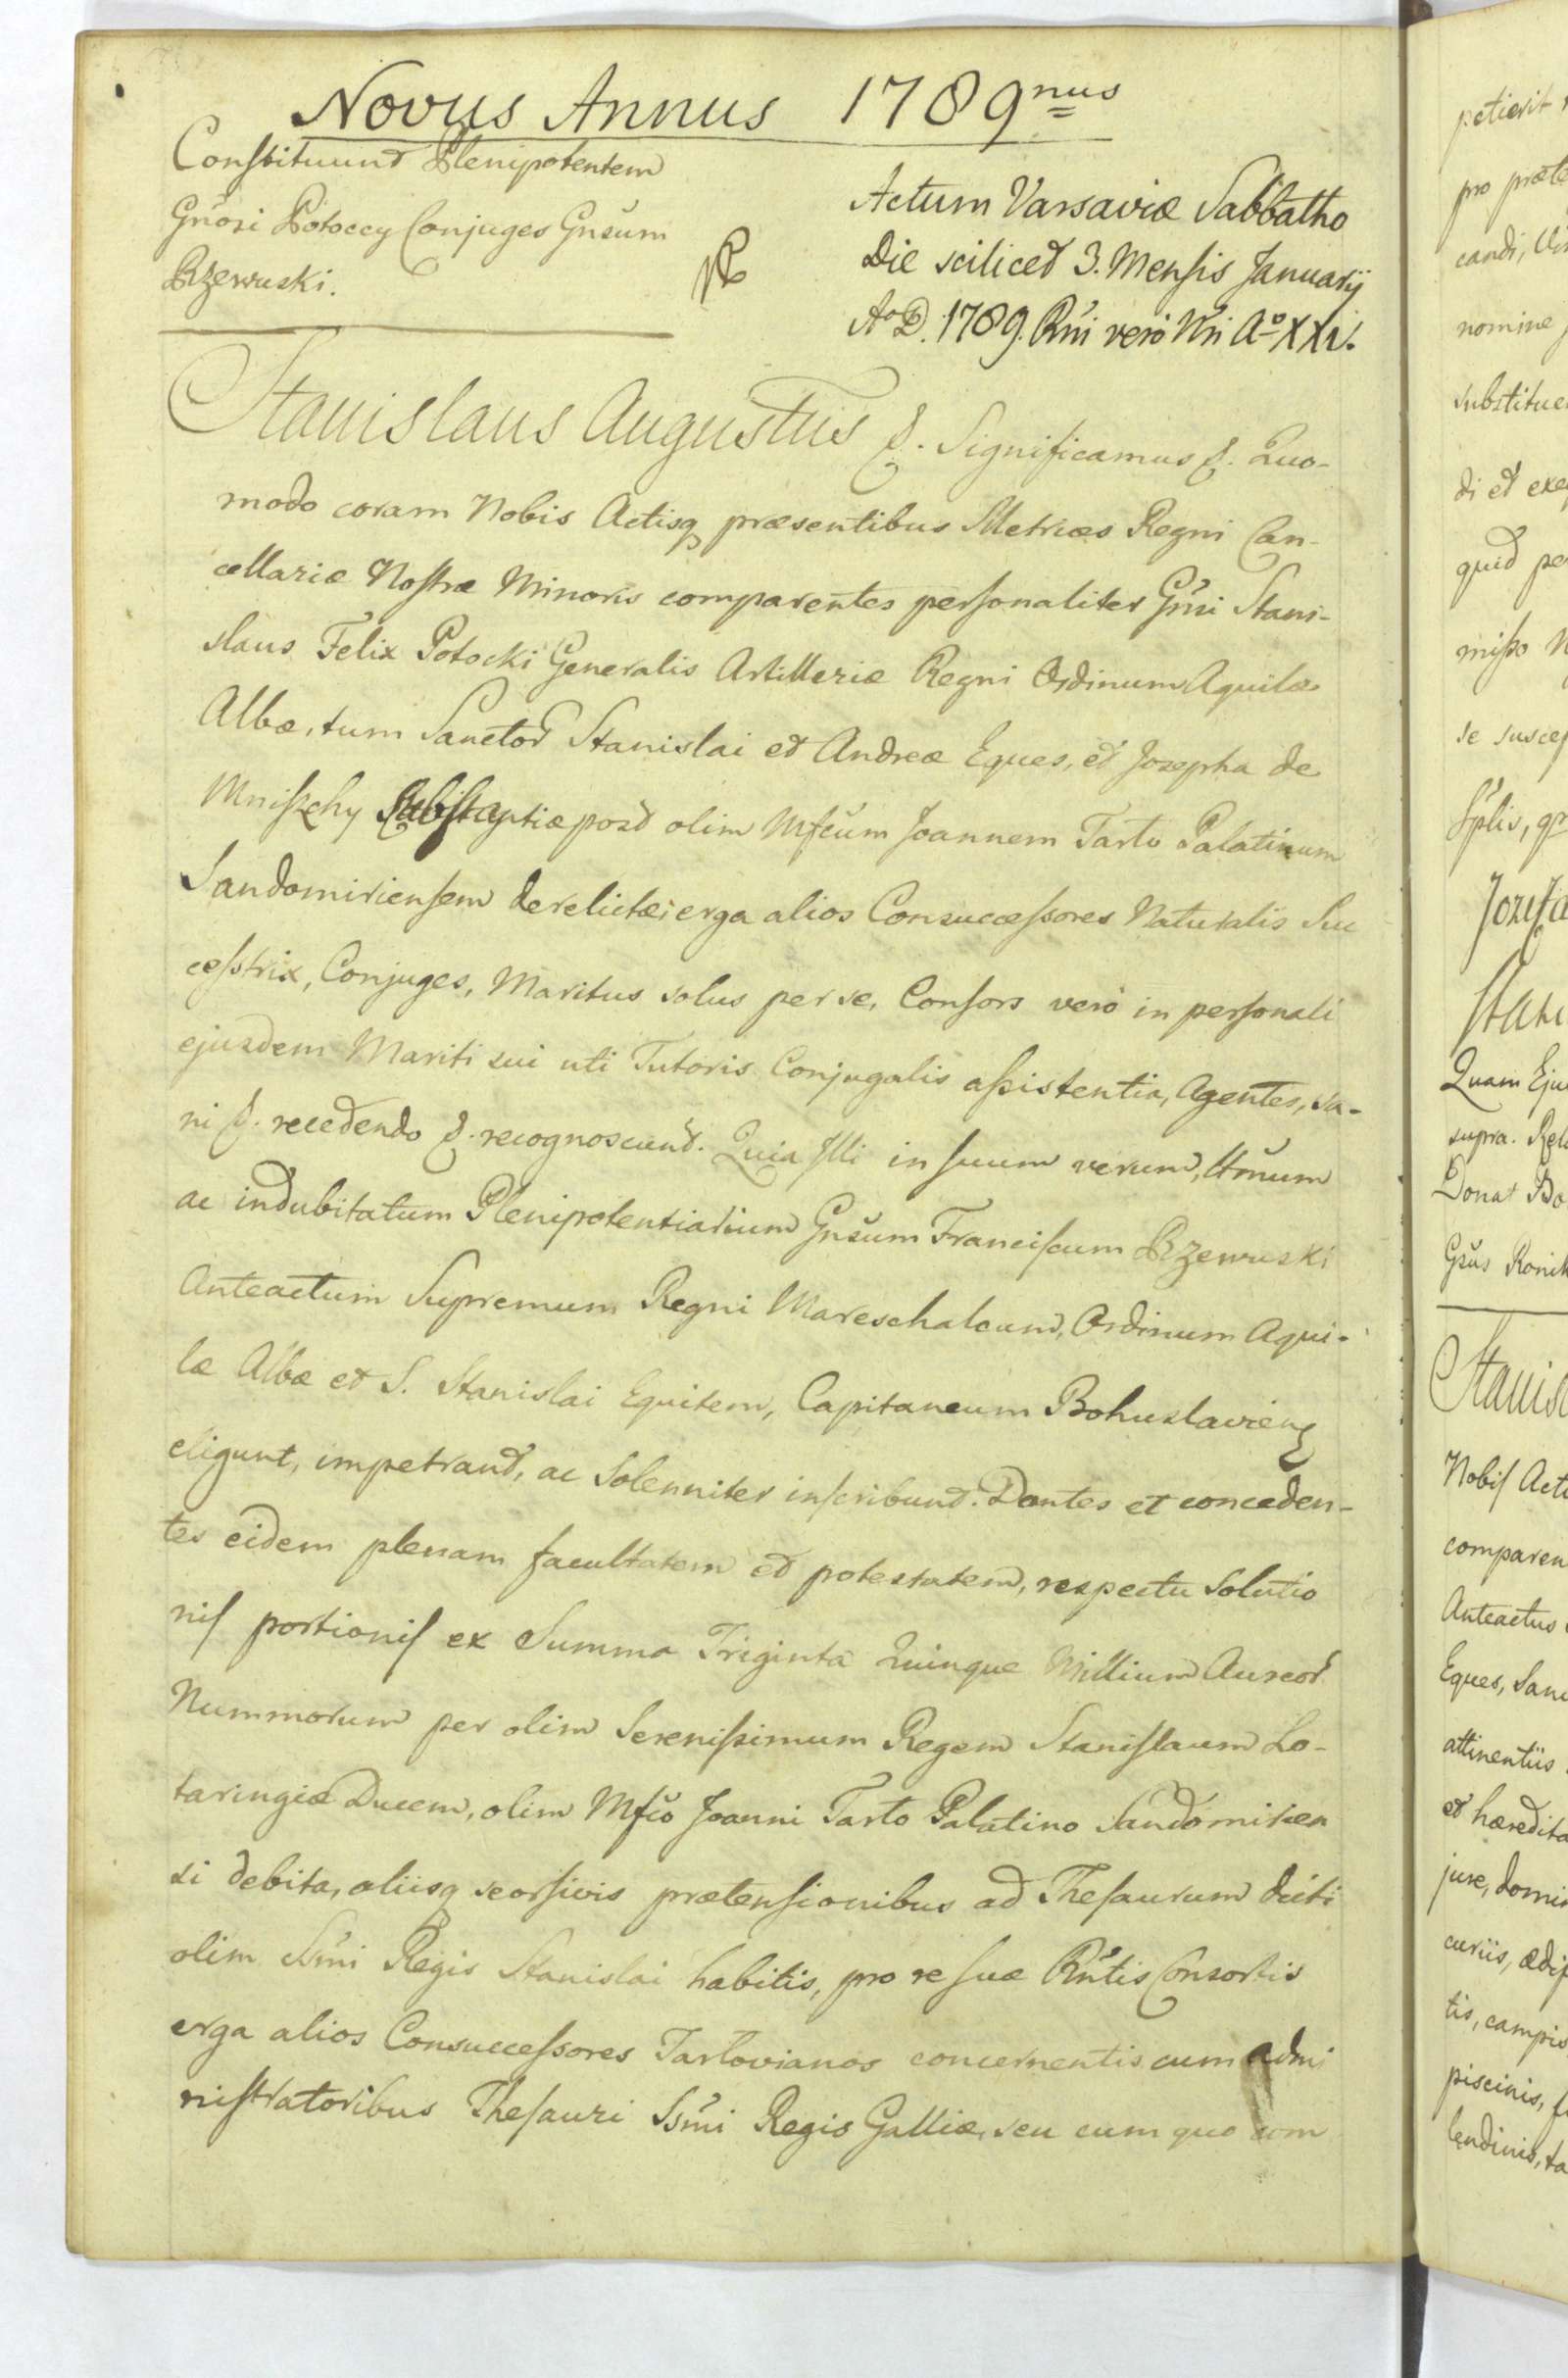 Novus Annus 1789nus
Constituunt Plenipotentem
Gñosi Potoccy Conjuges Gnsum
Rzewuski.
Actum Varsaviæ Sabbatho
Die scilicet 3. Mensis Januarij
Ao D. 1789. Rñi verò Nri Ao XXV.
Stanislaus Augustus &. Significamus &. Quo-
modo coram Nobis Actisq præsentibus Metrices Regni Can-
cellariæ Nostræ Minoris comparentes personaliter Gñsi Stani-
slaus Felix Potocki Generalis Artilleriæ Regni Ordinum Aquilæ
Albæ, tum Sanctor Stanislai et Andreæ Eques, et Jozepha de
Mniszchy Substantiæ post olim Mfcum Joannem Tarlo Palatinum
Sandomiriensem derelictæ, erga alios Consuccessores Naturalis Suc
cestrix, Conjuges, Maritus solus per se, Consors verò in personali
ejusdem Mariti sui uti Tutoris Conjugalis assistentia, Agentes, sa-
ni &. recedendo &. recognoscunt. Quia Illi in suum verum, ltmum
ac indubitatum Plenipotentiarium Gnsum Franciscum Rzewuski
Anteactum Supremum Regni Mareschalcum, Ordinum Aqui-
læ Albæ et S. Stanislai Equitem, Capitaneum Bohuslavien
eligunt, impetrant, ac Solenniter inscribunt. Dantes et conceden-
tes eidem plenam facultatem et potestatem, respectu Solutio
nis portionis ex Summa Triginta Quinque Millium Aureor
Nummorum per olim Serenissimum Regem Stanislaum Lo-
taringiæ Ducem, olim Mfco Joanni Tarlo Palatino Sandomirien
si debita, aliisq seorsivis prætensionibus ad Thesaurum dicti
olim Ssmi Regis Stanislai habitis, pro re suæ Rñtis Consortis
erga alios Consuccessores Tarlovianos concernentis cum admi
nistratoribus Thesauri Ssmi Regis Galliæ, seu cum quo com
petierit
pro præte
candi,
nomine
substitue
di et exe
quid pe
misso N
se suscep
Sptis,
Jozefa
Stani
Quam Eju
supra.
Donat Bo
Gsus Ronik
Stanisl
Nobis Acti
comparen
Anteactus
Eques, Sanc
attinentiis
et hæredita
jure, domin
curiis, ædif
tis, campis
piscinis,
lendinis, ta